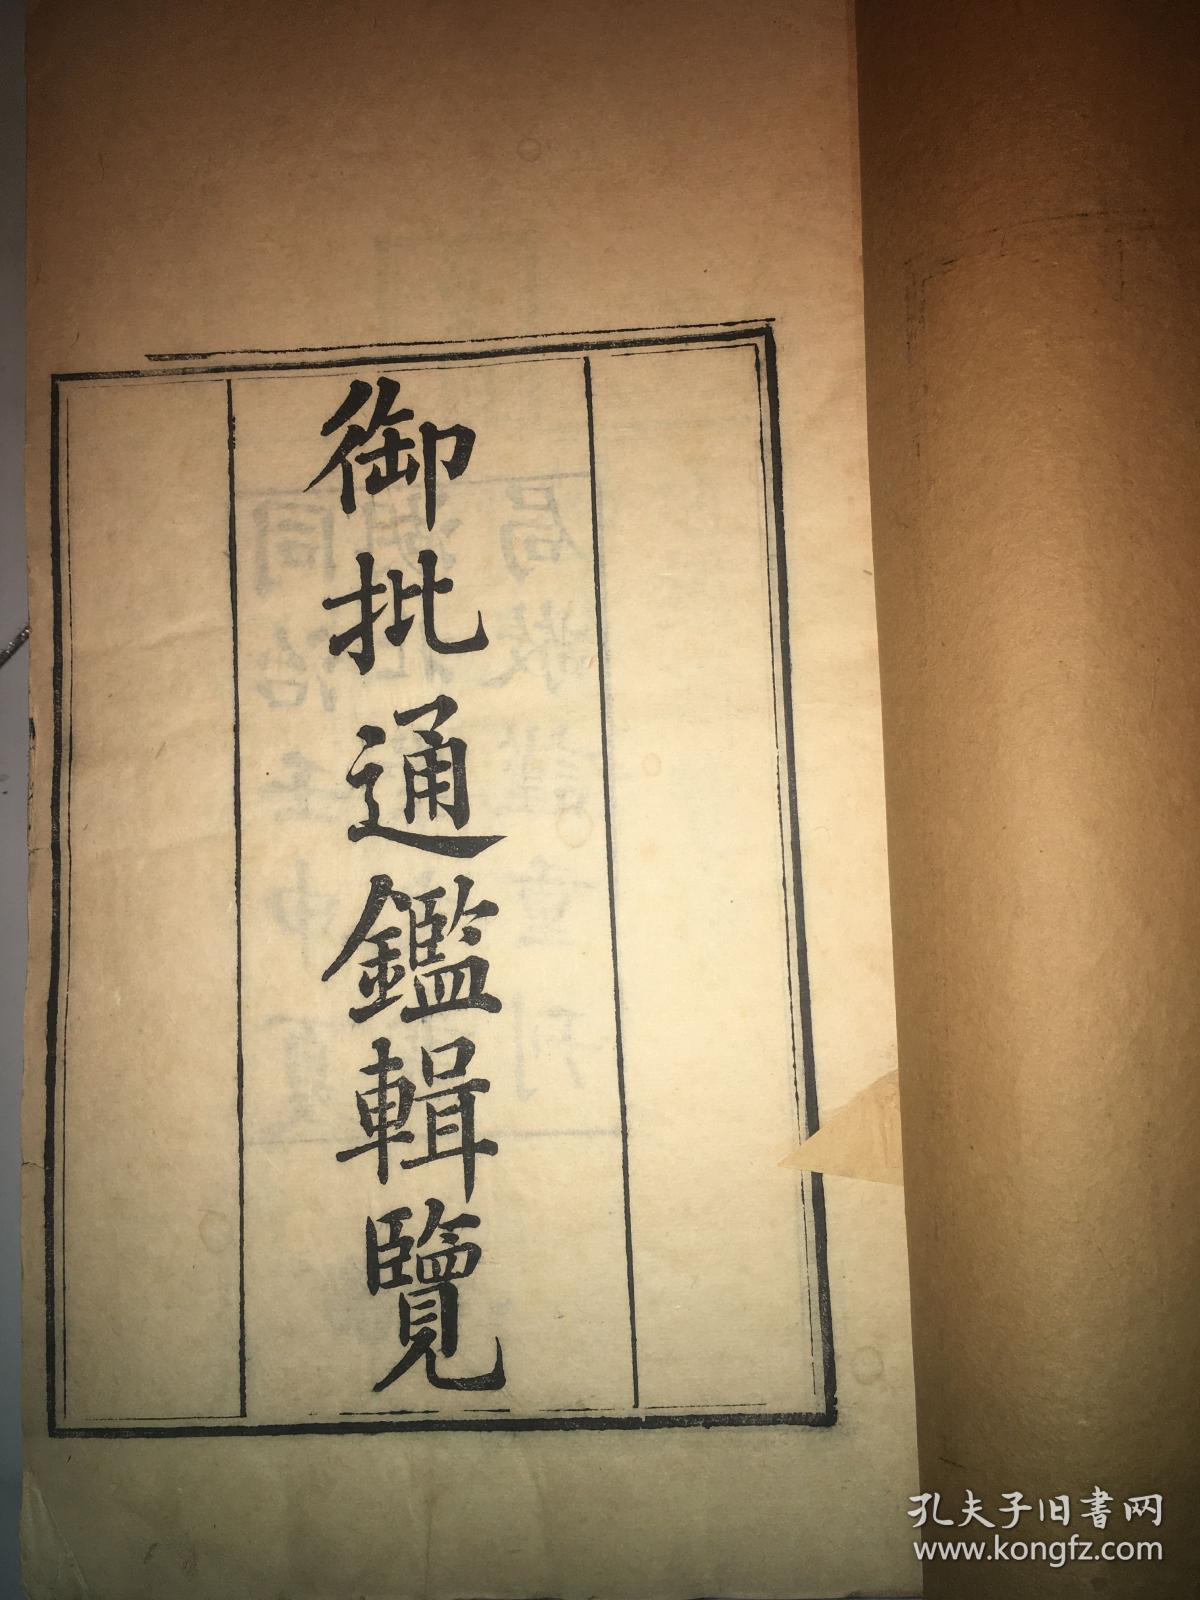 御批通鑑輯覽
孔夫子旧書网
www.kongfz.com